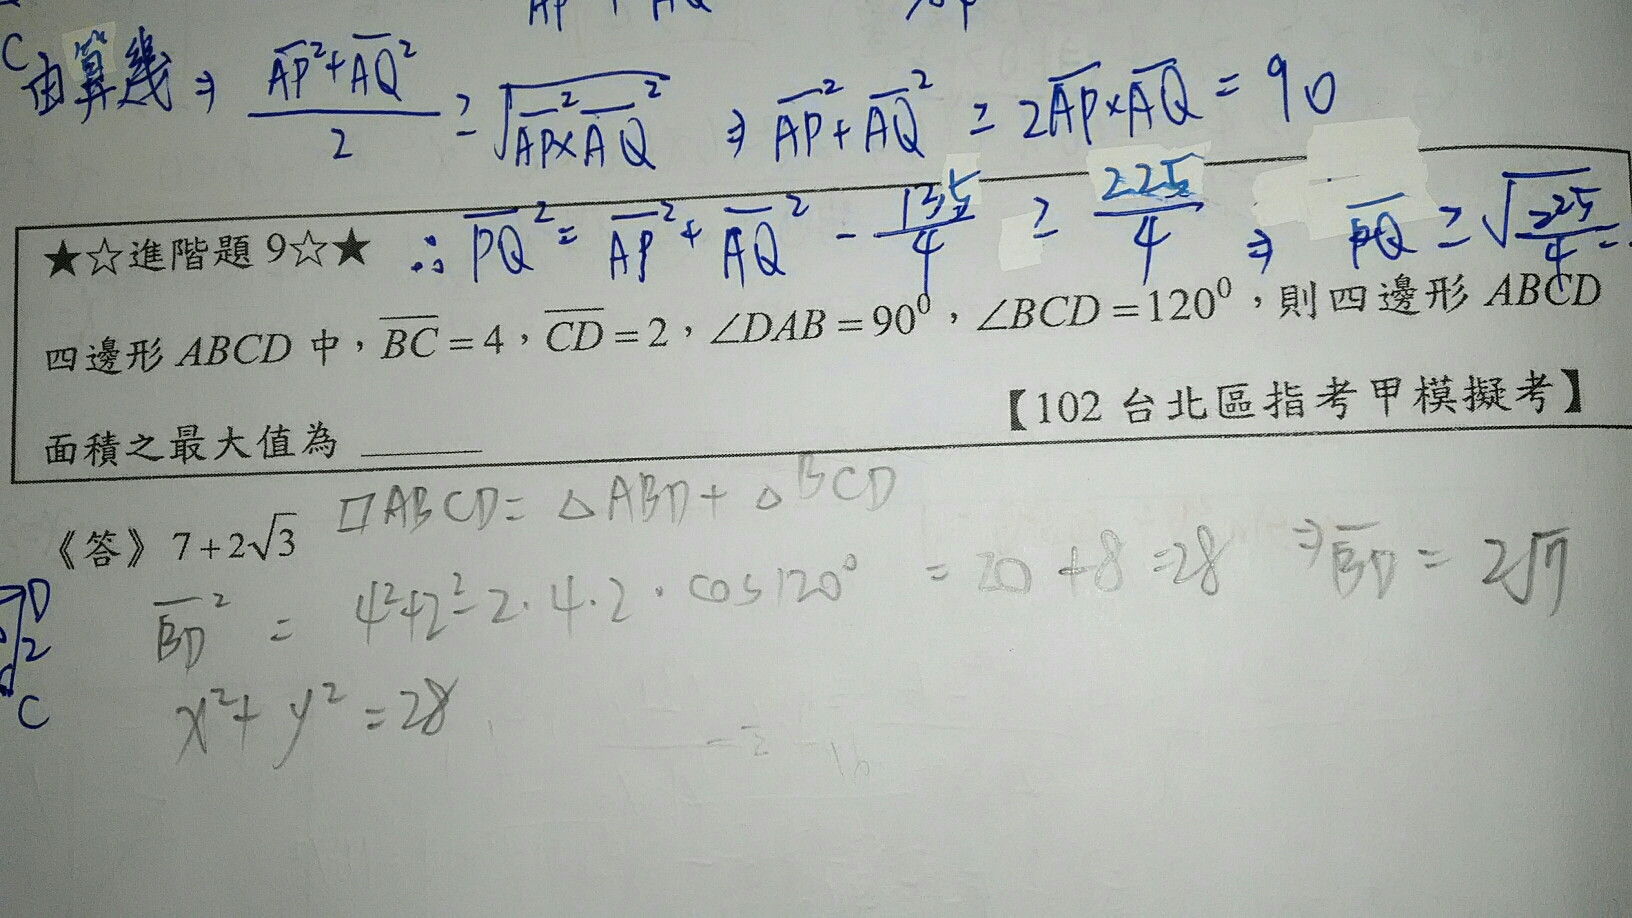 C
由算幾 ⇒ (AP²+AQ²)/2 ≥ √(AP²×AQ²) ⇒ AP²+AQ² ≥ 2AP×AQ = 90
∴ PQ² = AP²+AQ² - 135/4 ≥ 225/4 ⇒ PQ ≥ √(225/4) =
★☆進階題 9☆★
四邊形 ABCD 中,BC = 4,CD = 2,∠DAB = 90⁰,∠BCD = 120⁰,則四邊形 ABCD
面積之最大值為 ______ 【102 台北區指考甲模擬考】
□ABCD = △ABD + △BCD
《答》7 + 2√3
BD² = 4²+2²-2·4·2·cos120° = 20+8 = 28 ⇒ BD = 2√7
D
2
C
x²+y² = 28